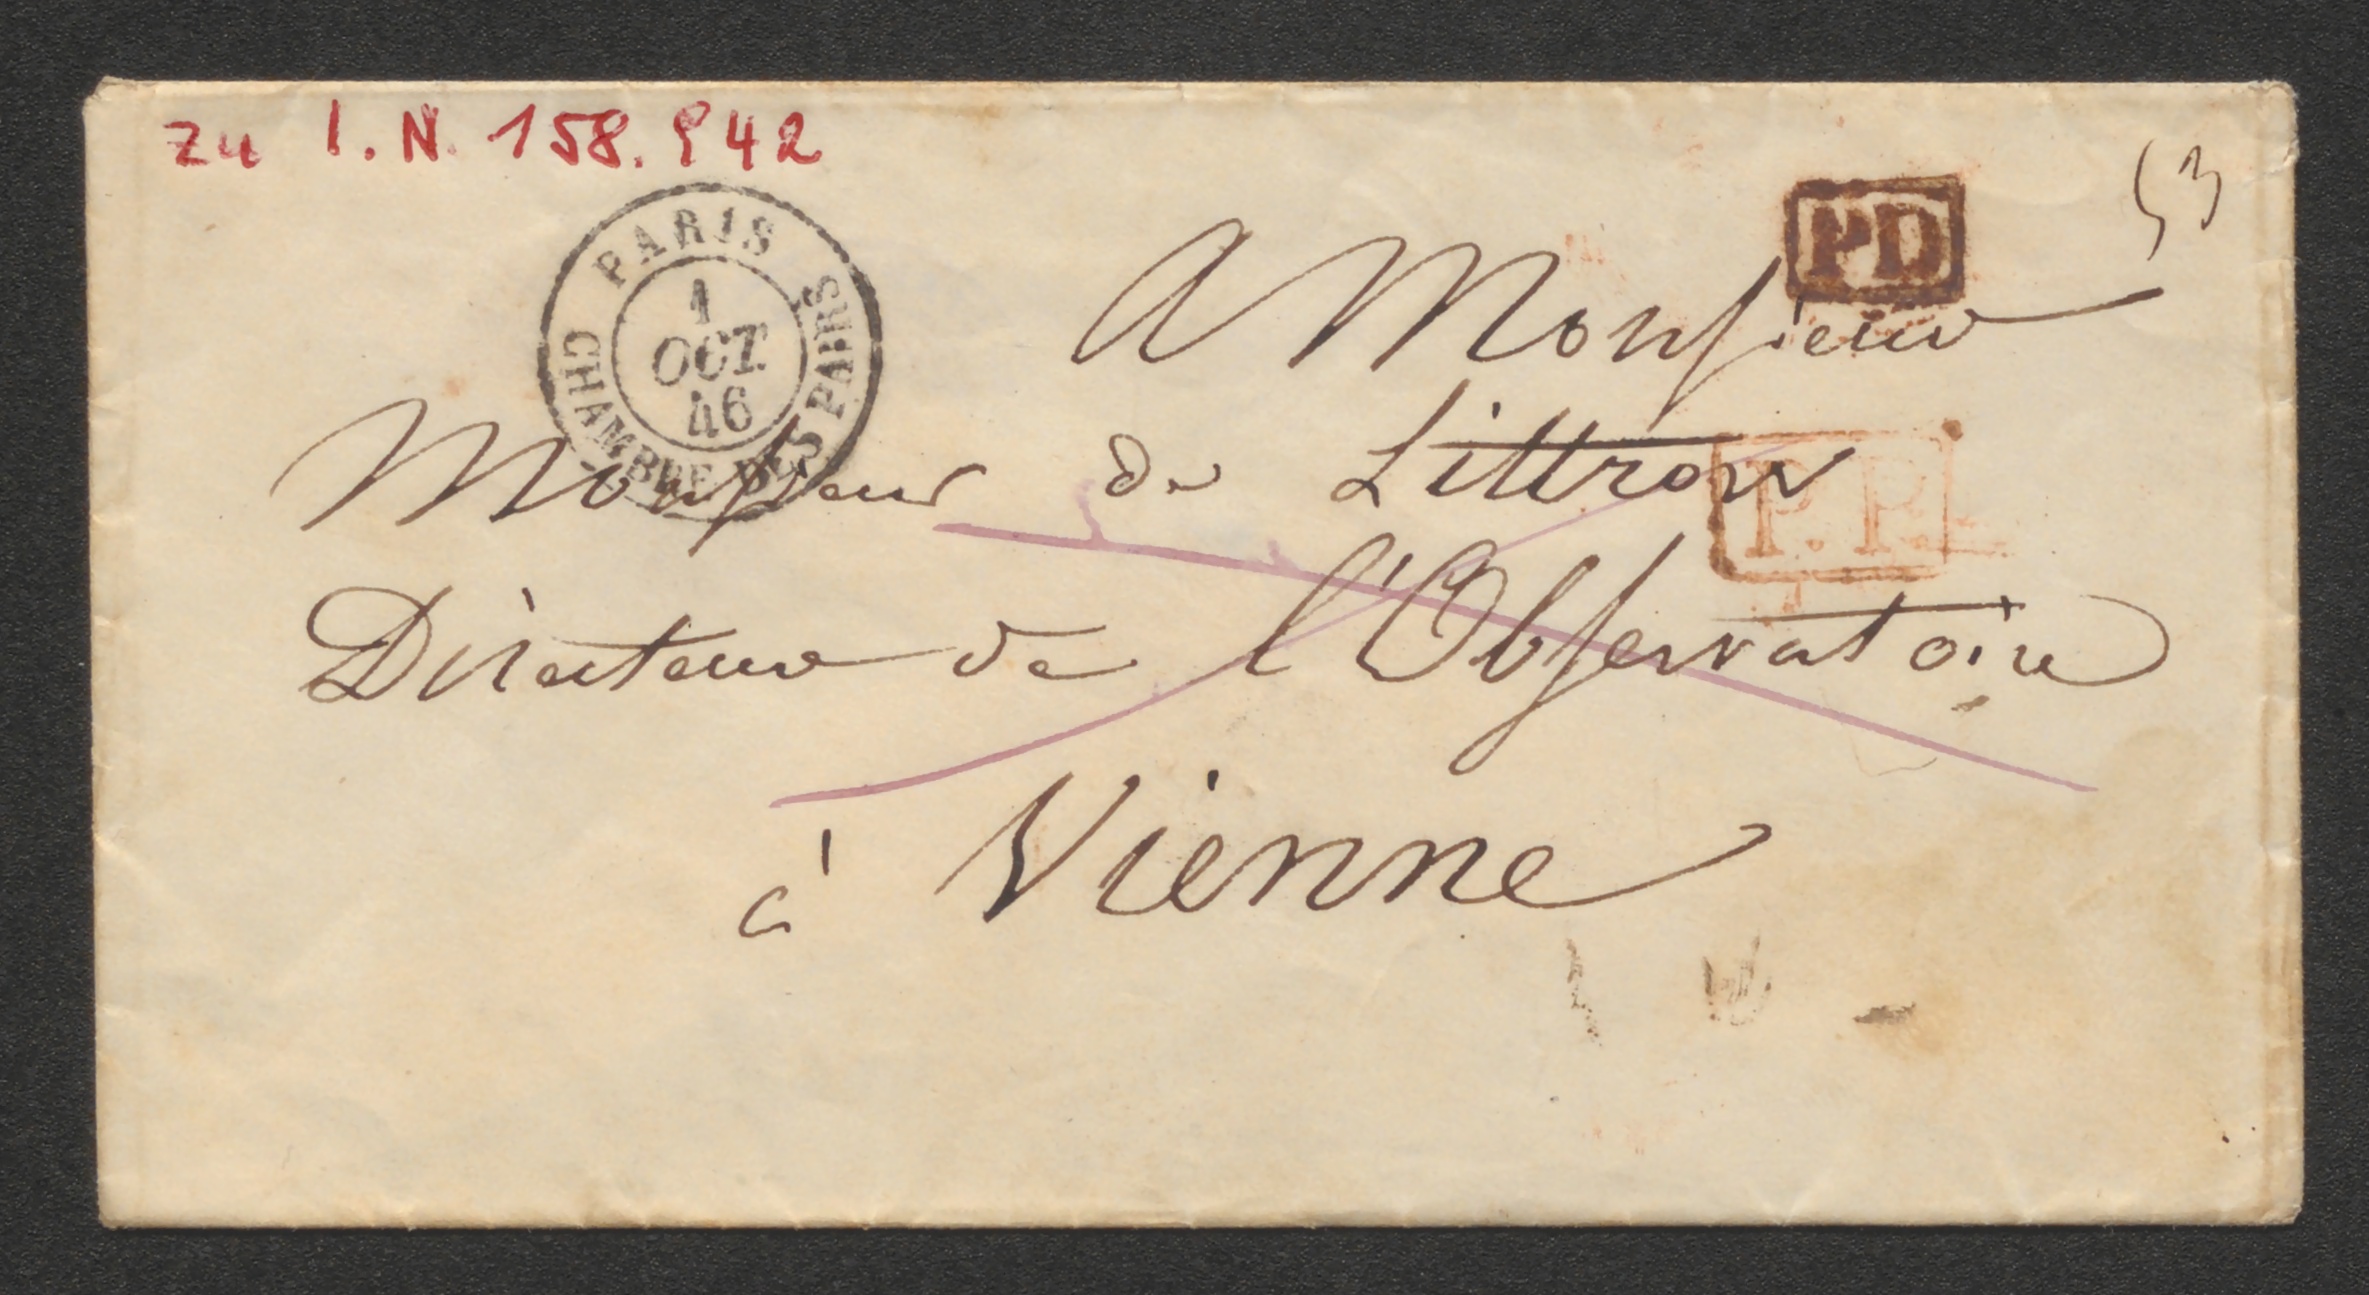 zu I.N. 158.942
53
PD
PARIS
CHAMBRE DES PAIRS
1
OCT.
46
A Monsieur
Monsieur de Littrow
P.P.
Directeur de l'Observatoire
à Vienne